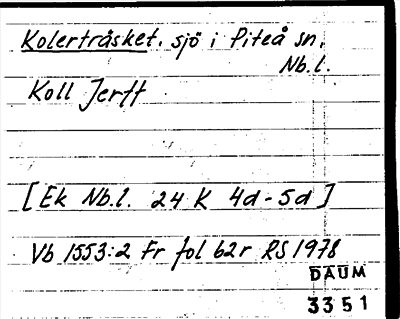 Kolerträsket. sjö i Piteå sn.
Nb.l.
Koll Jerff
[Ek Nb.l. 24 K 4d-5d]
Vb 1553:2 Fr fol 62r RS 1978
DAUM
3351